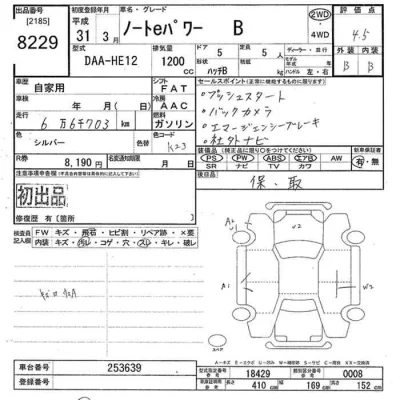 出品番号 [2185] 8229
初度登録年月 平成 31年 3月
車名・グレード ノートeパワー B
2WD 4WD
評価点 4.5
型式 DAA-HE12
排気量 1200 CC
ドア 5
定員 5人
形状 ハッチB
ディーラー・並行
ハンドル 左・右
外装 内装
B B
車歴 自家用
シフト FAT
車検 年 月( 日)
冷房 AAC
走行 6万6千703 km
燃料 ガソリン
色 シルバー
色コード K23
R券 8,190 円
名変期限
セールスポイント
・プッシュスタート
・バックカメラ
・エマージェンシーブレーキ
・社外ナビ
装備品
PS PW ABS エアB AW
SR ナビ TV カワ
新車保証書 有・無
後日品 保、取
注意事項
初出品
修復歴 有 [箇所 ]
検査員 FW キズ・飛石・ヒビ割・リペア跡・×要
報告 内装 キズ・汚レ・コゲ・穴・スレ・キレ・破レ
A2
U2
A1
W2
スペア
A-キズ E-エクボ U-凹み W-補修跡 S-サビ C-腐食 X-要交換 XX-交換済
車台番号 253639
登録番号
型式指定番号 18429
類別区分番号 0008
長さ 410 cm
幅 169 cm
高さ 152 cm